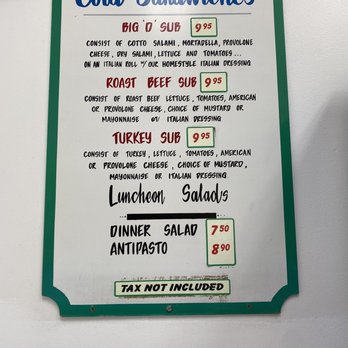 Cold Sandwiches
BIG 'D' SUB 9.95
CONSIST OF COTTO SALAMI, MORTADELLA, PROVOLONE
CHEESE, DRY SALAMI, LETTUCE AND TOMATOES...
ON AN ITALIAN ROLL W/ OUR HOMESTYLE ITALIAN DRESSING
ROAST BEEF SUB 9.95
CONSIST OF ROAST BEEF LETTUCE, TOMATOES, AMERICAN
OR PROVOLONE CHEESE, CHOICE OF MUSTARD OR
MAYONNAISE OR ITALIAN DRESSING
TURKEY SUB 9.95
CONSIST OF TURKEY, LETTUCE, TOMATOES, AMERICAN
OR PROVOLONE CHEESE, CHOICE OF MUSTARD,
MAYONNAISE OR ITALIAN DRESSING.
Luncheon Salads
DINNER SALAD 7.50
ANTIPASTO 8.90
TAX NOT INCLUDED